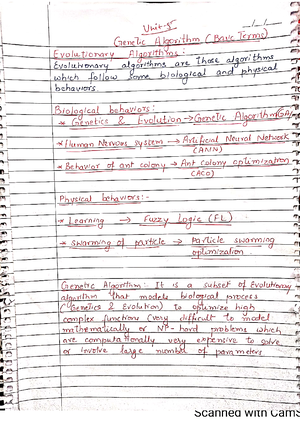 Unit-5
Genetic Algorithm (Basic Terms)
Evolutionary Algorithms:
Evolutionary algorithms are those algorithms
which follow some biological and physical
behaviors.
Biological behaviors:
* Genetics & Evolution → Genetic Algorithm(GA)
* Human Nervous system → Artificial Neural Network
(ANN)
* Behavior of ant colony → Ant colony optimization
(ACO)
Physical behaviors:-
* Learning → Fuzzy Logic (FL)
* Swarming of particle → Particle swarming
optimization
Genetic Algorithm: It is a subset of Evolutionary
algorithm that models biological process
(Genetics & Evolution) to optimize high
complex functions (very difficult to model
mathematically or NP-hard problems which
are computationally very expensive to solve
or involve large number of parameters
Scanned with CamS